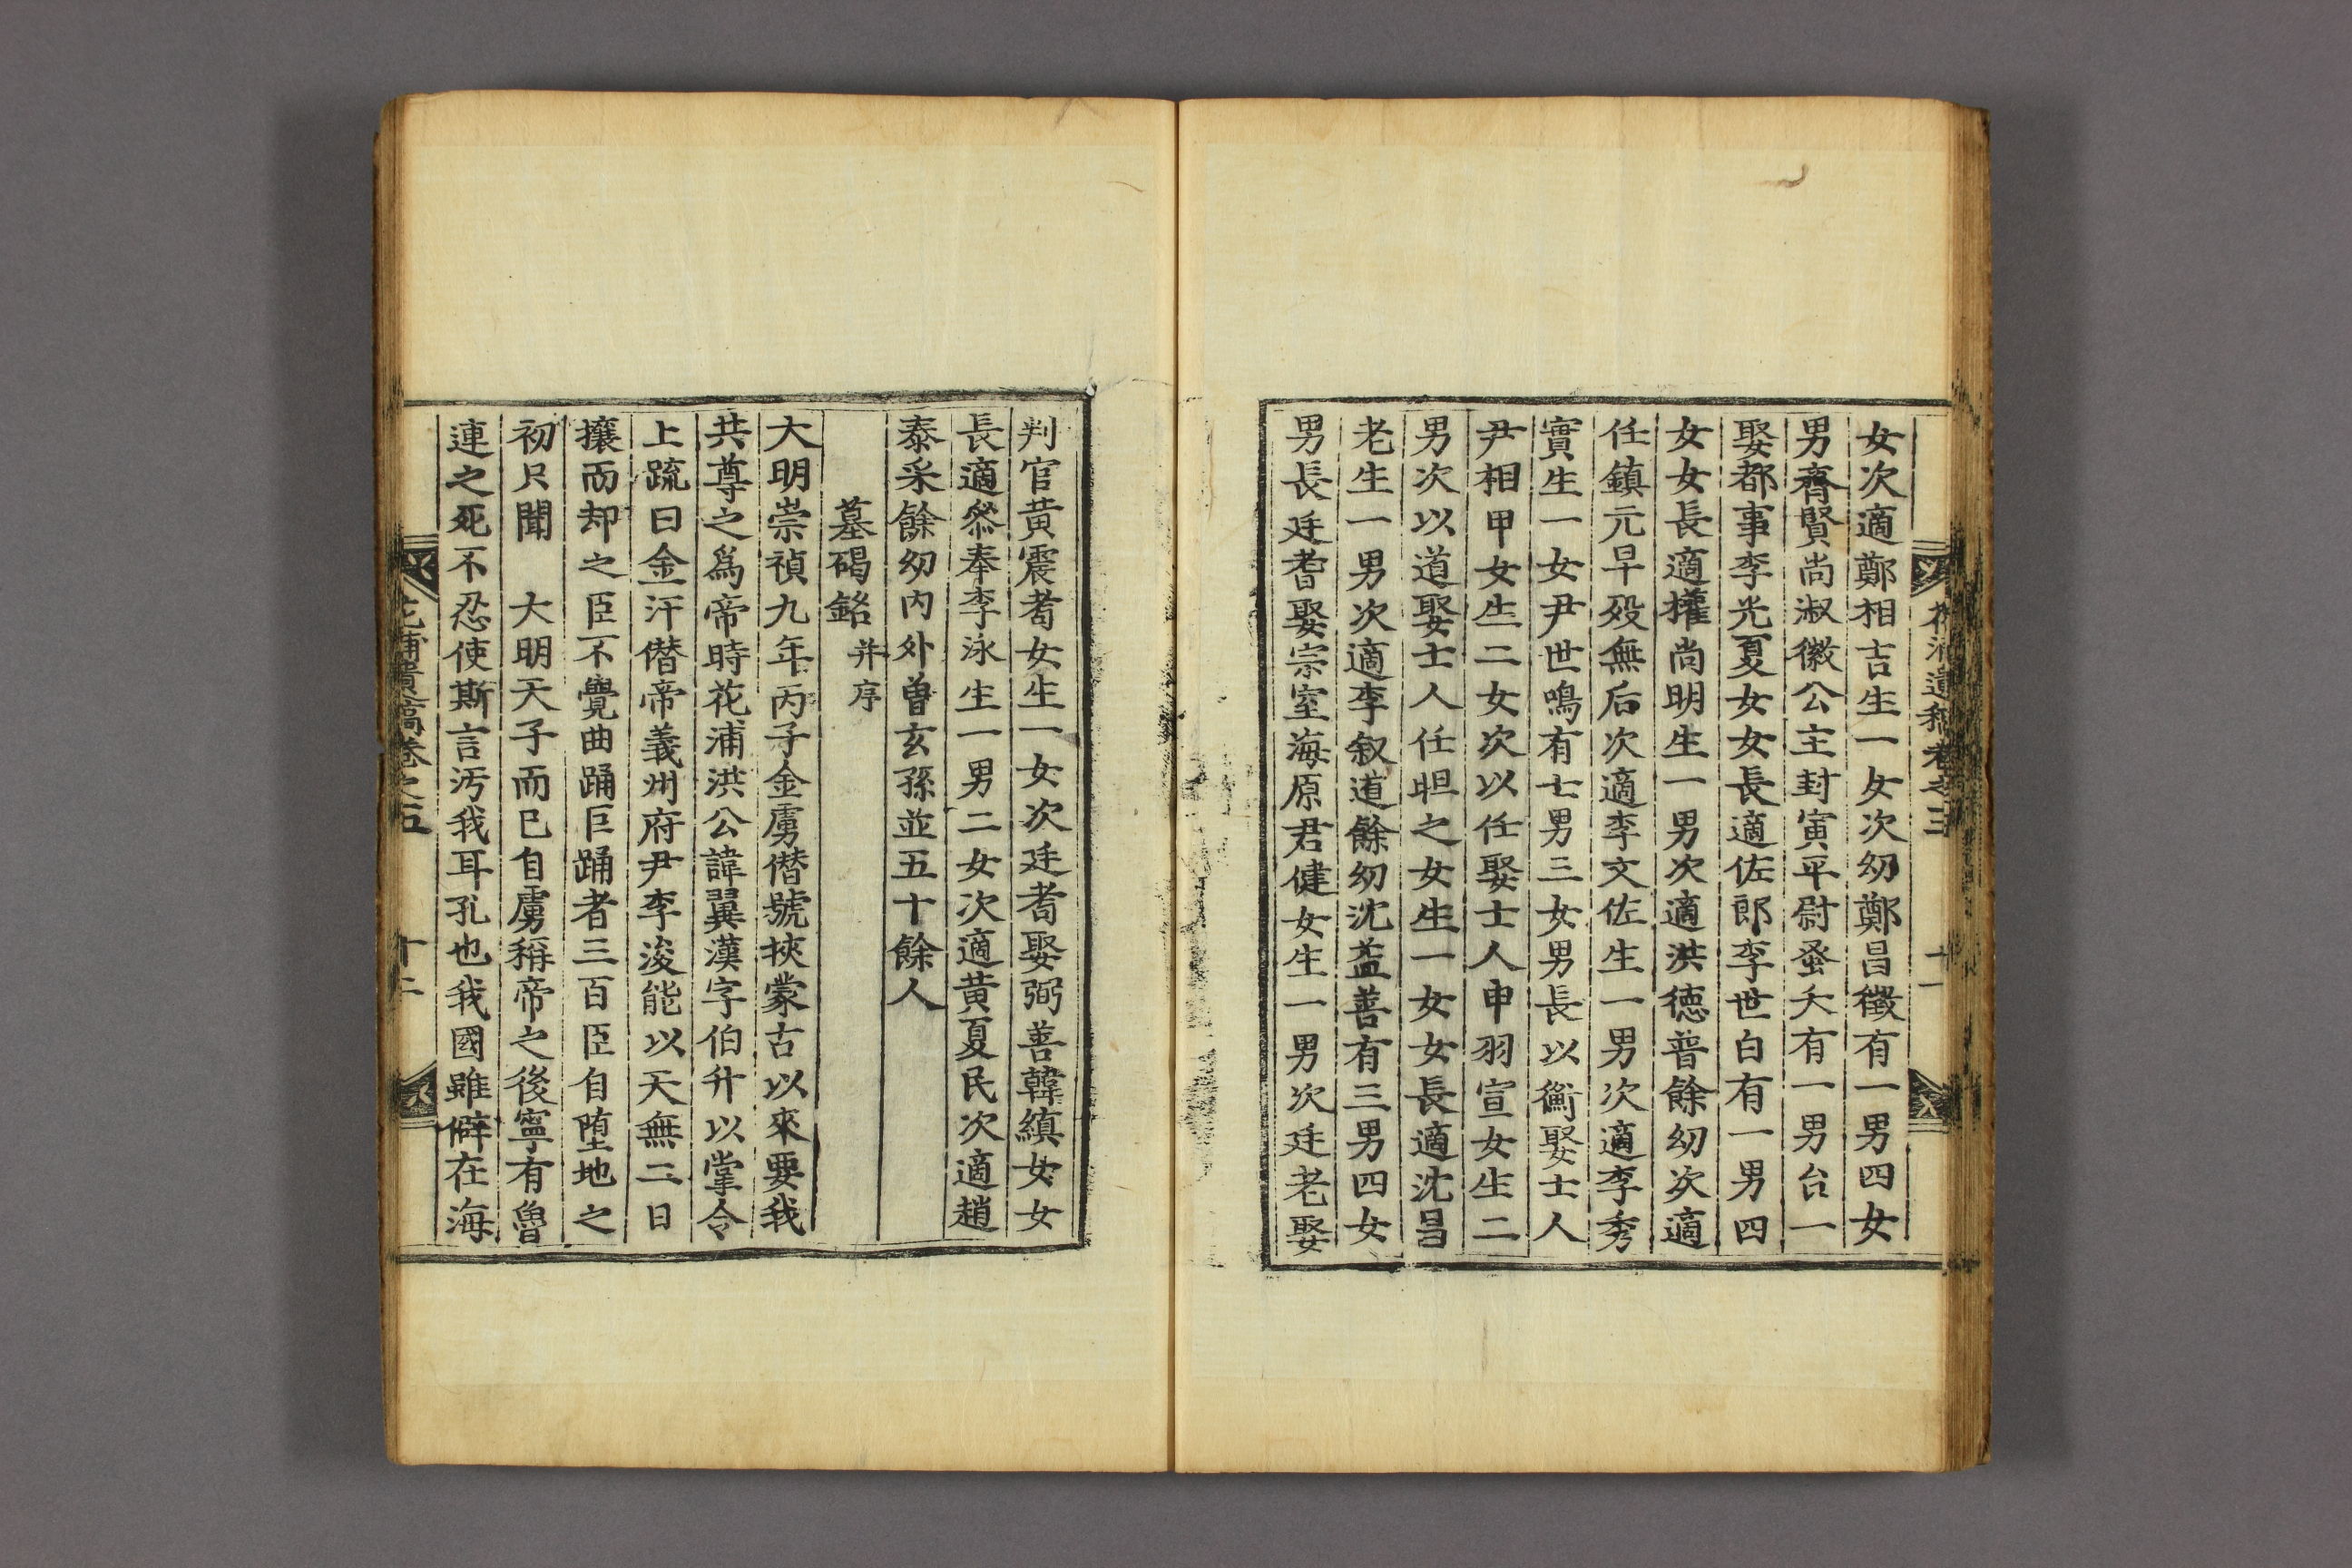 花浦遺稿卷之五
十一
女次適鄭相吉生一女次幼鄭昌徵有一男四女
男齊賢尚淑徽公主封寅平尉蚤夭有一男台一
娶都事李光夏女女長適佐郎李世白有一男四
女女長適權尚明生一男次適洪德普餘幼次適
任鎮元早歿無后次適李文佐生一男次適李秀
實生一女尹世鳴有七男三女男長以衡娶士人
尹相甲女生二女次以任娶士人申羽宣女生二
男次以道娶士人任㫜之女生一女女長適沈昌
老生一男次適李叙道餘幼沈益善有三男四女
男長廷耆娶宗室海原君健女生一男次廷老娶
判官黄震耈女生一女次廷耉娶弼善韓縝女女
長適叅奉李泳生一男二女次適黄夏民次適趙
泰采餘幼內外曽玄孫並五十餘人
墓碣銘并序
大明崇禎九年丙子金虜僣號挾蒙古以來要我
共尊之爲帝時花浦洪公諱翼漢字伯升以掌令
上疏曰金汗僣帝義州府尹李浚能以天無二日
攘而却之臣不覺曲踊巨踊者三百臣自墮地之
初只聞　大明天子而已自虜稱帝之後寧有魯
連之死不忍使斯言汚我耳孔也我國雖僻在海
花浦遺稿卷之五
十二